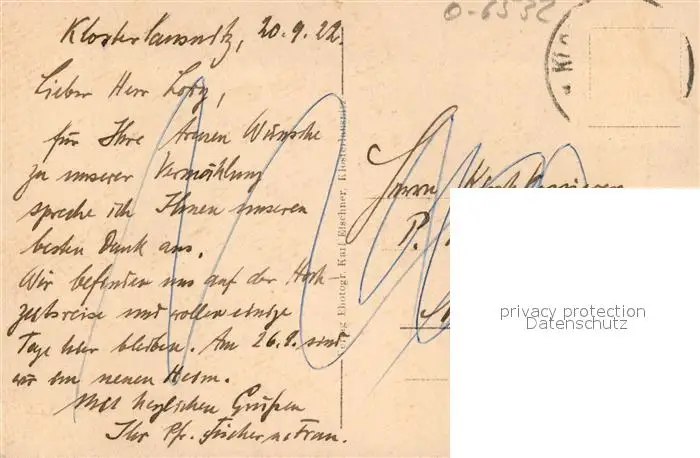 O-6532
Klosterlausnitz, 20.9.22.
Lieber Herr Lory,
für Ihre treuen Wünsche
zu unserer Vermählung
spreche ich Ihnen unseren
besten Dank aus.
Wir befinden uns auf der Hoch-
zeitsreise und wollen einige
Tage hier bleiben. Am 26.9. sind
wir im neuen Heim.
Mit herzlichen Grüßen
Ihr Pfr. Fischer u. Frau.
Verlag Photogr. Karl Etschner, Klosterlausnitz
Herrn
P.
privacy protection
Datenschutz